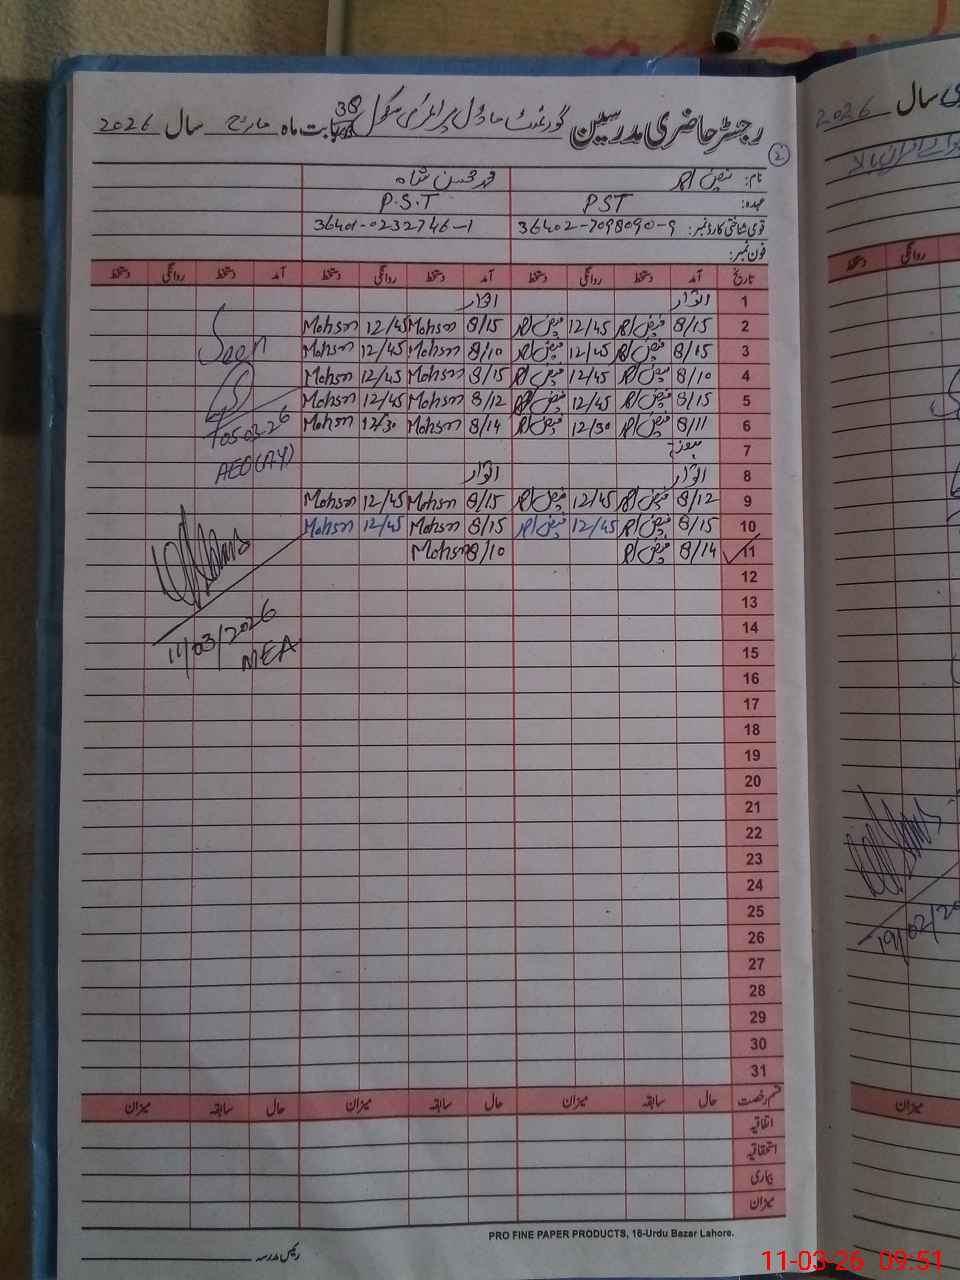 رجسٹر حاضری مدرسین گورنمنٹ ماڈل پرائمری سکول 38 بابت ماہ مارچ سال 2026
2
نام: فیض محمد شاہ
عہدہ: PST P.S.T
قومی شناختی کارڈ نمبر: 36402-7098090-9 36401-0232746-1
فون نمبر:
تاریخ آمد دستخط روانگی دستخط آمد دستخط روانگی دستخط آمد دستخط روانگی دستخط
1 اتوار اتوار
2 8/15 فیض 12/45 فیض 8/15 Mohsin 12/45 Mohsin
3 8/15 فیض 12/45 فیض 8/10 Mohsin 12/45 Mohsin
4 8/10 فیض 12/45 فیض 8/15 Mohsin 12/45 Mohsin
5 8/15 فیض 12/45 فیض 8/12 Mohsin 12/45 Mohsin
6 8/11 فیض 12/30 فیض 8/14 Mohsin 12/30 Mohsin
7
8 اتوار اتوار
9 8/12 فیض 12/45 فیض 8/15 Mohsin 12/45 Mohsin
10 8/15 فیض 12/45 فیض 8/15 Mohsin 12/45 Mohsin
11 8/14 فیض 8/10 Mohsin
12
13
14
15
16
17
18
19
20
21
22
23
24
25
26
27
28
29
30
31
Seen
05-03-26
AEO
11/03/2026
MEA
قسم رخصت حال سابقہ میزان حال سابقہ میزان حال سابقہ میزان
اتفاقیہ
استحقاقیہ
بیماری
میزان
PRO FINE PAPER PRODUCTS, 16-Urdu Bazar Lahore.
رئیس مدرسہ
سال 2026
روانگی دستخط
19/02/20
میزان
11-03-26 09:51